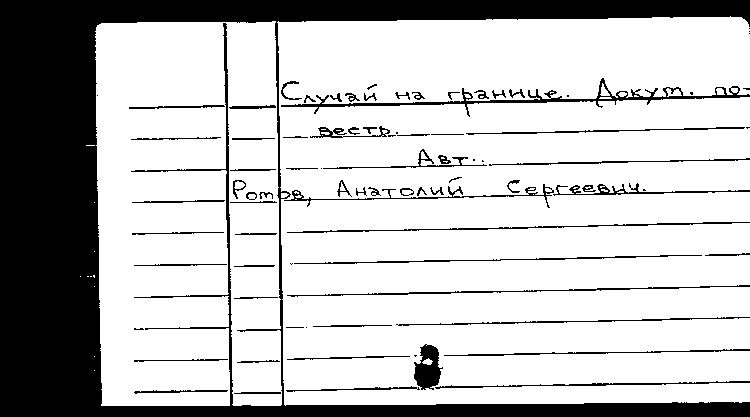 Случай на границе. Докум. по-
весть.
Авт.:
Ротов, Анатолий Сергеевич.